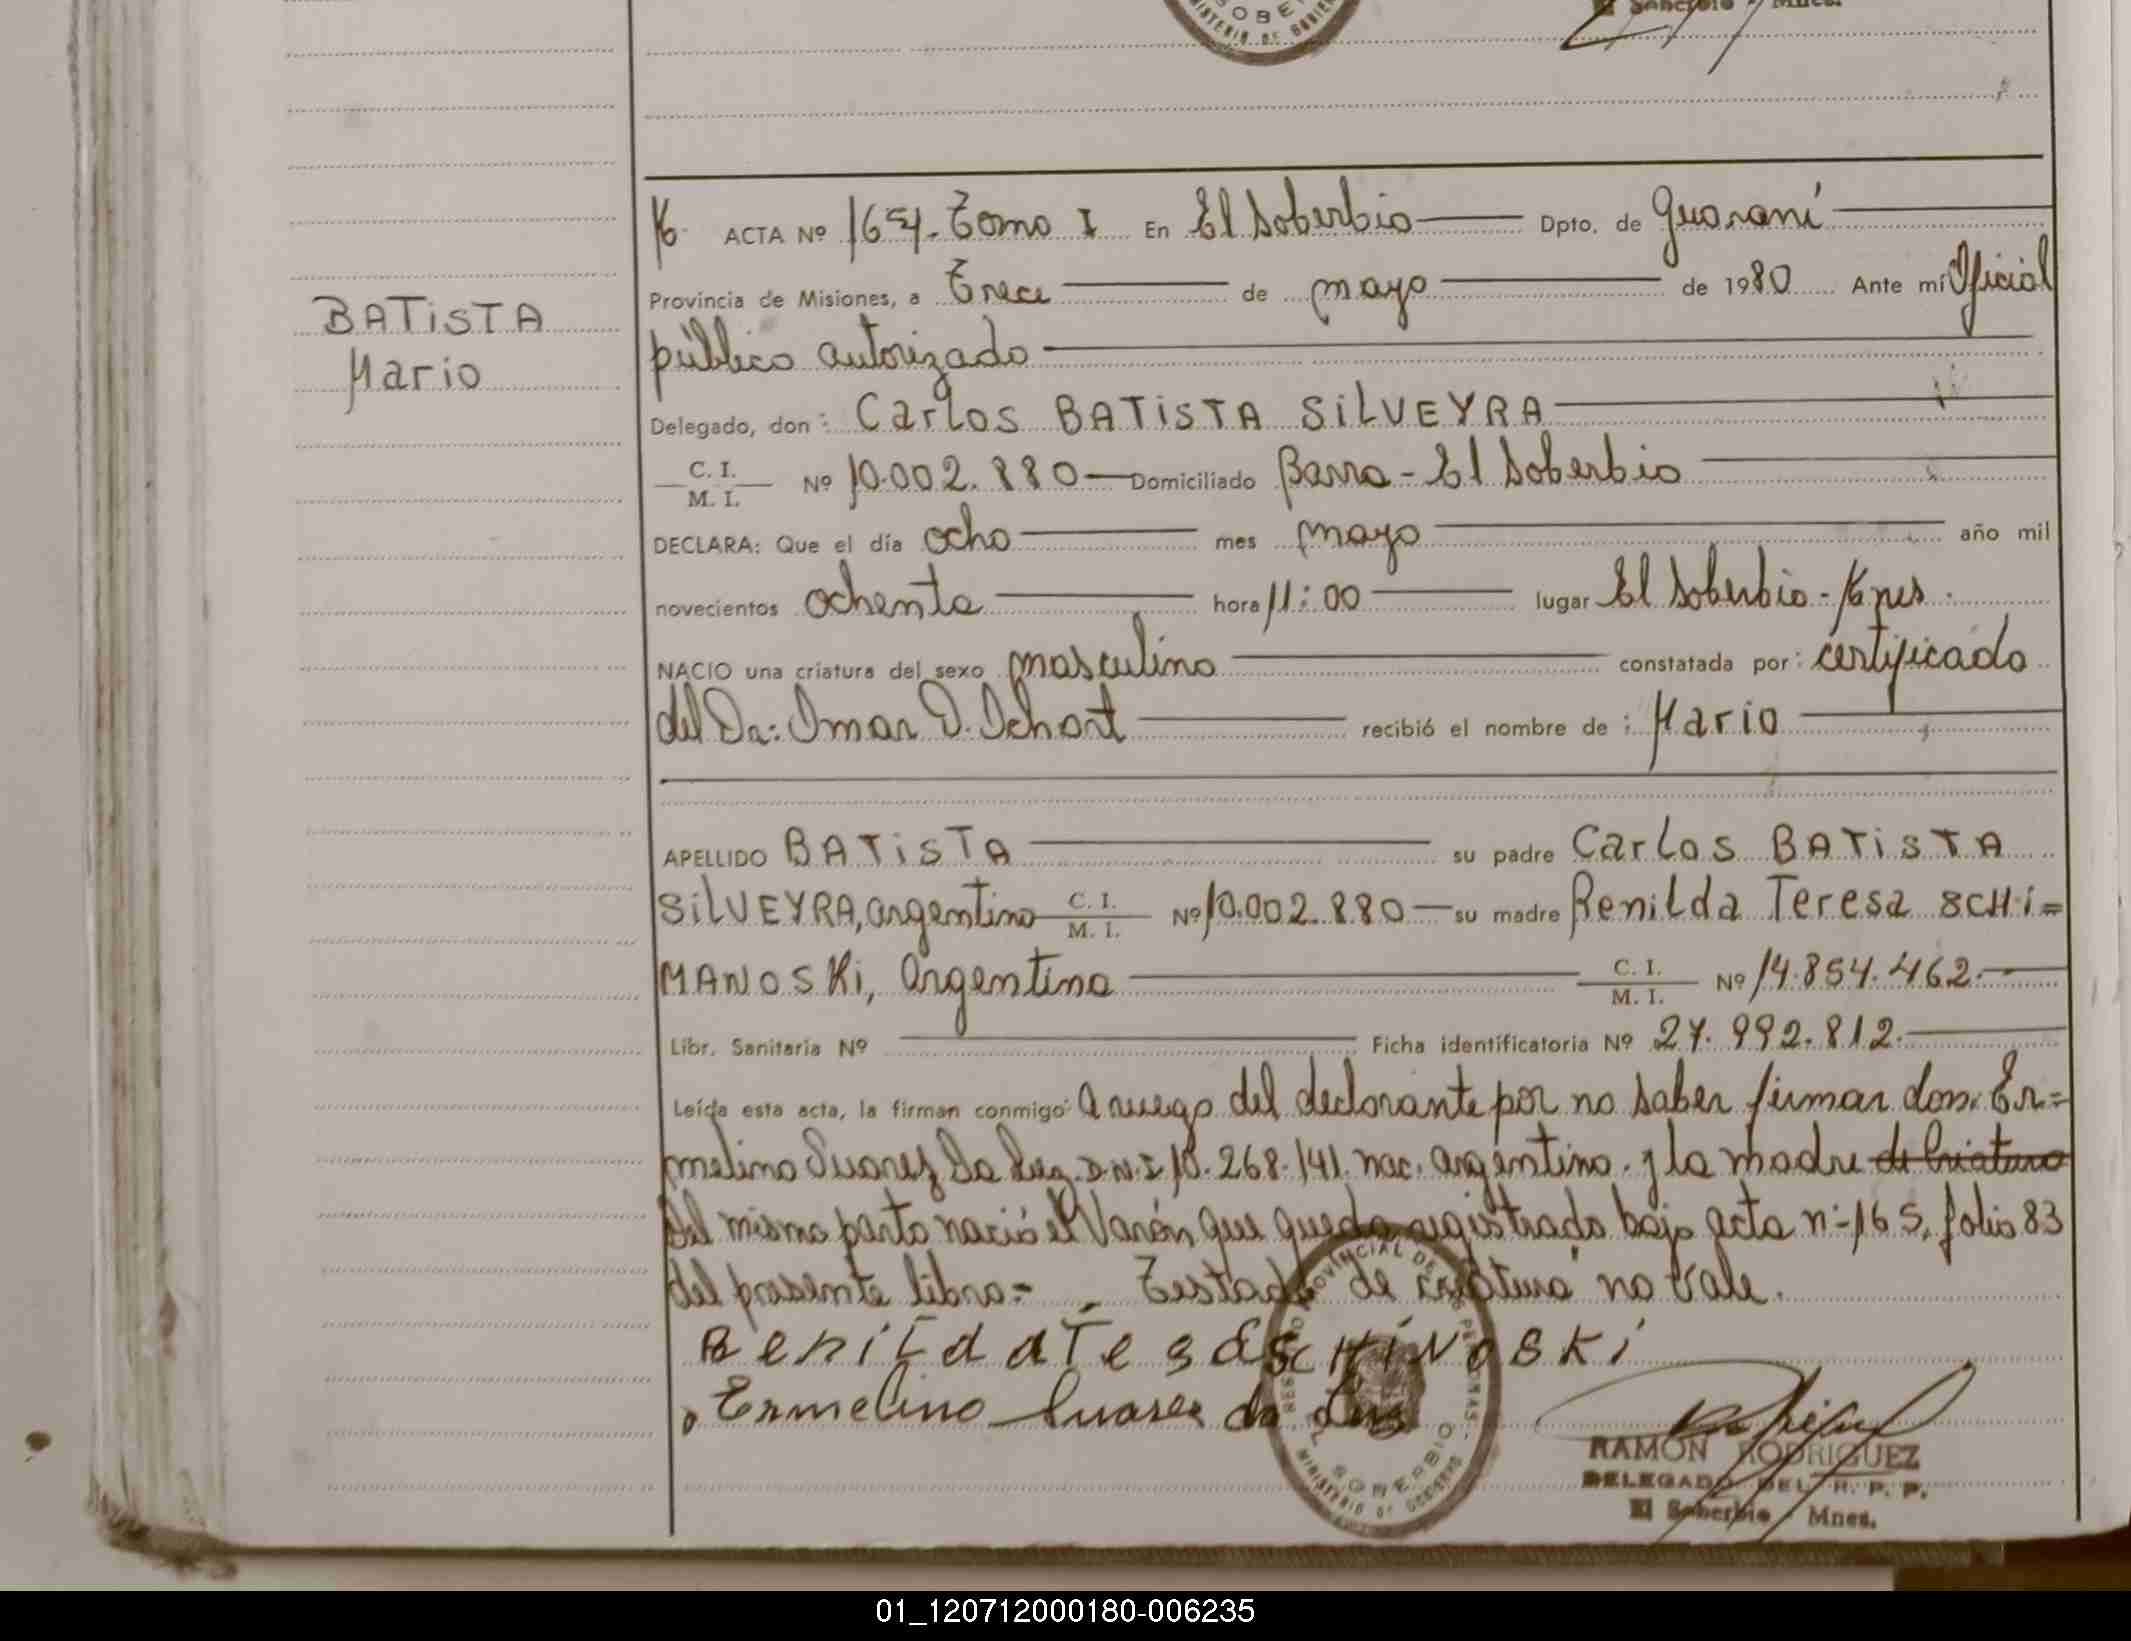 SOBE
MINISTERIO DE GOBIERNO
El Soberbio - Mnes.
M ACTA Nº 164. Tomo I En El Soberbio Dpto. de Guaraní
Provincia de Misiones, a Trece de mayo de 1980 Ante mí Oficial
BATiSTA
Mario
público autorizado
Delegado, don: Carlos BATiSTA SiLVEYRA
C. I.
M. I. Nº 10.002.880 Domiciliado Barra - El Soberbio
DECLARA: Que el día ocho mes mayo año mil
novecientos ochenta hora 11:00 lugar El Soberbio - Mnes.
NACIO una criatura del sexo masculino constatada por: certificado
del Dr: Omar D. Ichart recibió el nombre de: Mario
APELLIDO BATiSTA su padre Carlos BATiSTA
SiLVEYRA, argentino C. I. M. I. Nº 10.002.880 su madre Renilda Teresa SCHi=
MANOSKi, argentina C. I. M. I. Nº 14.854.462.
Libr. Sanitaria Nº Ficha identificatoria Nº 27.992.812.
Leída esta acta, la firman conmigo: a ruego del declarante por no saber firmar don: Er=
melino Suarez Da Luz. D.N.I 10.268.141. nac. argentino. y la madre de criatura
Del mismo parto nació el Varón que queda registrado bajo acta n: 165, folio 83
del presente libro = Testado "de criatura" no vale.
RenildaTesaSCHiNOSKi
Ermelino Suares da Luz
REGISTRO PROVINCIAL DE LAS PERSONAS
EL SOBERBIO
MINISTERIO DE GOBIERNO
RAMON RODRIGUEZ
DELEGADO DEL R. P. P.
El Soberbio - Mnes.
01_120712000180-006235